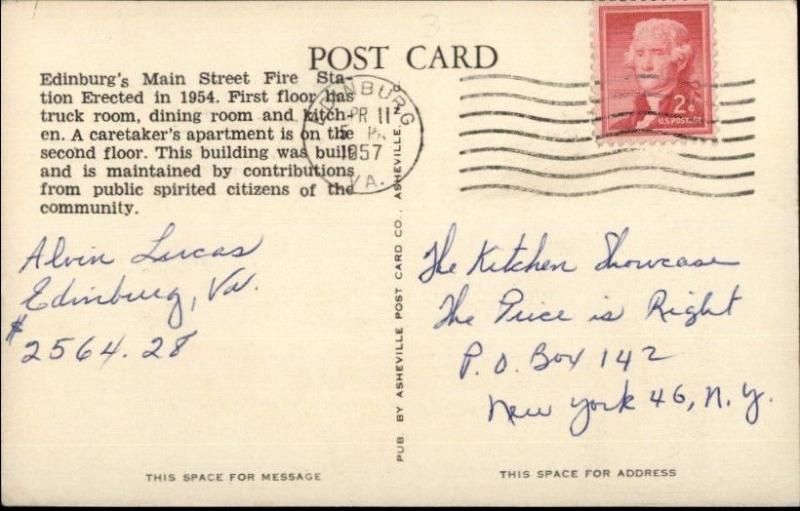 POST CARD
Edinburg's Main Street Fire Sta-
tion Erected in 1954. First floor has
truck room, dining room and kitch-
en. A caretaker's apartment is on the
second floor. This building was built
and is maintained by contributions
from public spirited citizens of the
community.
EDINBURG
APR 11
5 PM
1957
VA.
2¢
U.S. POSTAGE
Alvin Lucas
Edinburg, Va.
$
2564.28
PUB. BY ASHEVILLE POST CARD CO., ASHEVILLE, N.C.
The Kitchen Showcase
The Price is Right
P. O. Box 142
New York 46, N.Y.
THIS SPACE FOR MESSAGE
THIS SPACE FOR ADDRESS